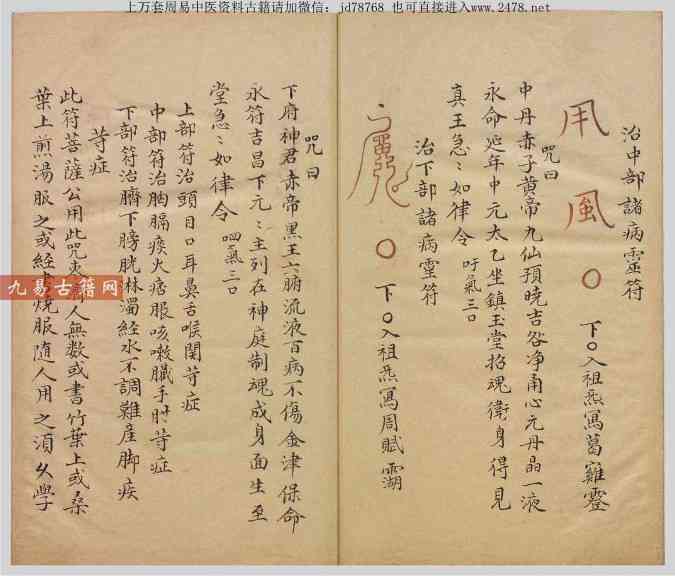 上万套周易中医资料古籍请加微信：jd78768 也可直接进入www.2478.net
治中部諸病靈符
用風〇 下〇入祖炁寫葛雞靈
咒曰
中丹赤子黄帝九仙預晓吉咎净甬心元丹晶一液
永命延年中元太乙坐鎮玉堂招魂衛身得見
真王急〻如律令 吁氣三口
治下部諸病靈符
〇 下〇入祖炁寫周賦湖
咒曰
下府神君赤帝黑王六腑流液百病不傷金津保命
永符吉昌下元〻主列在神庭制魂成身面生至
堂急〻如律令 呬氣三口
上部符治頭目口耳鼻舌喉関等症
中部符治胸膈痰火痞服咳嗽臟手肘等症
下部符治臍下膀胱林濁経水不調難産脚疾
等症
此符菩薩公用此咒人無数或書竹葉上或桑
葉上煎湯服之或経焼服隨人用之須久學
九易古籍网